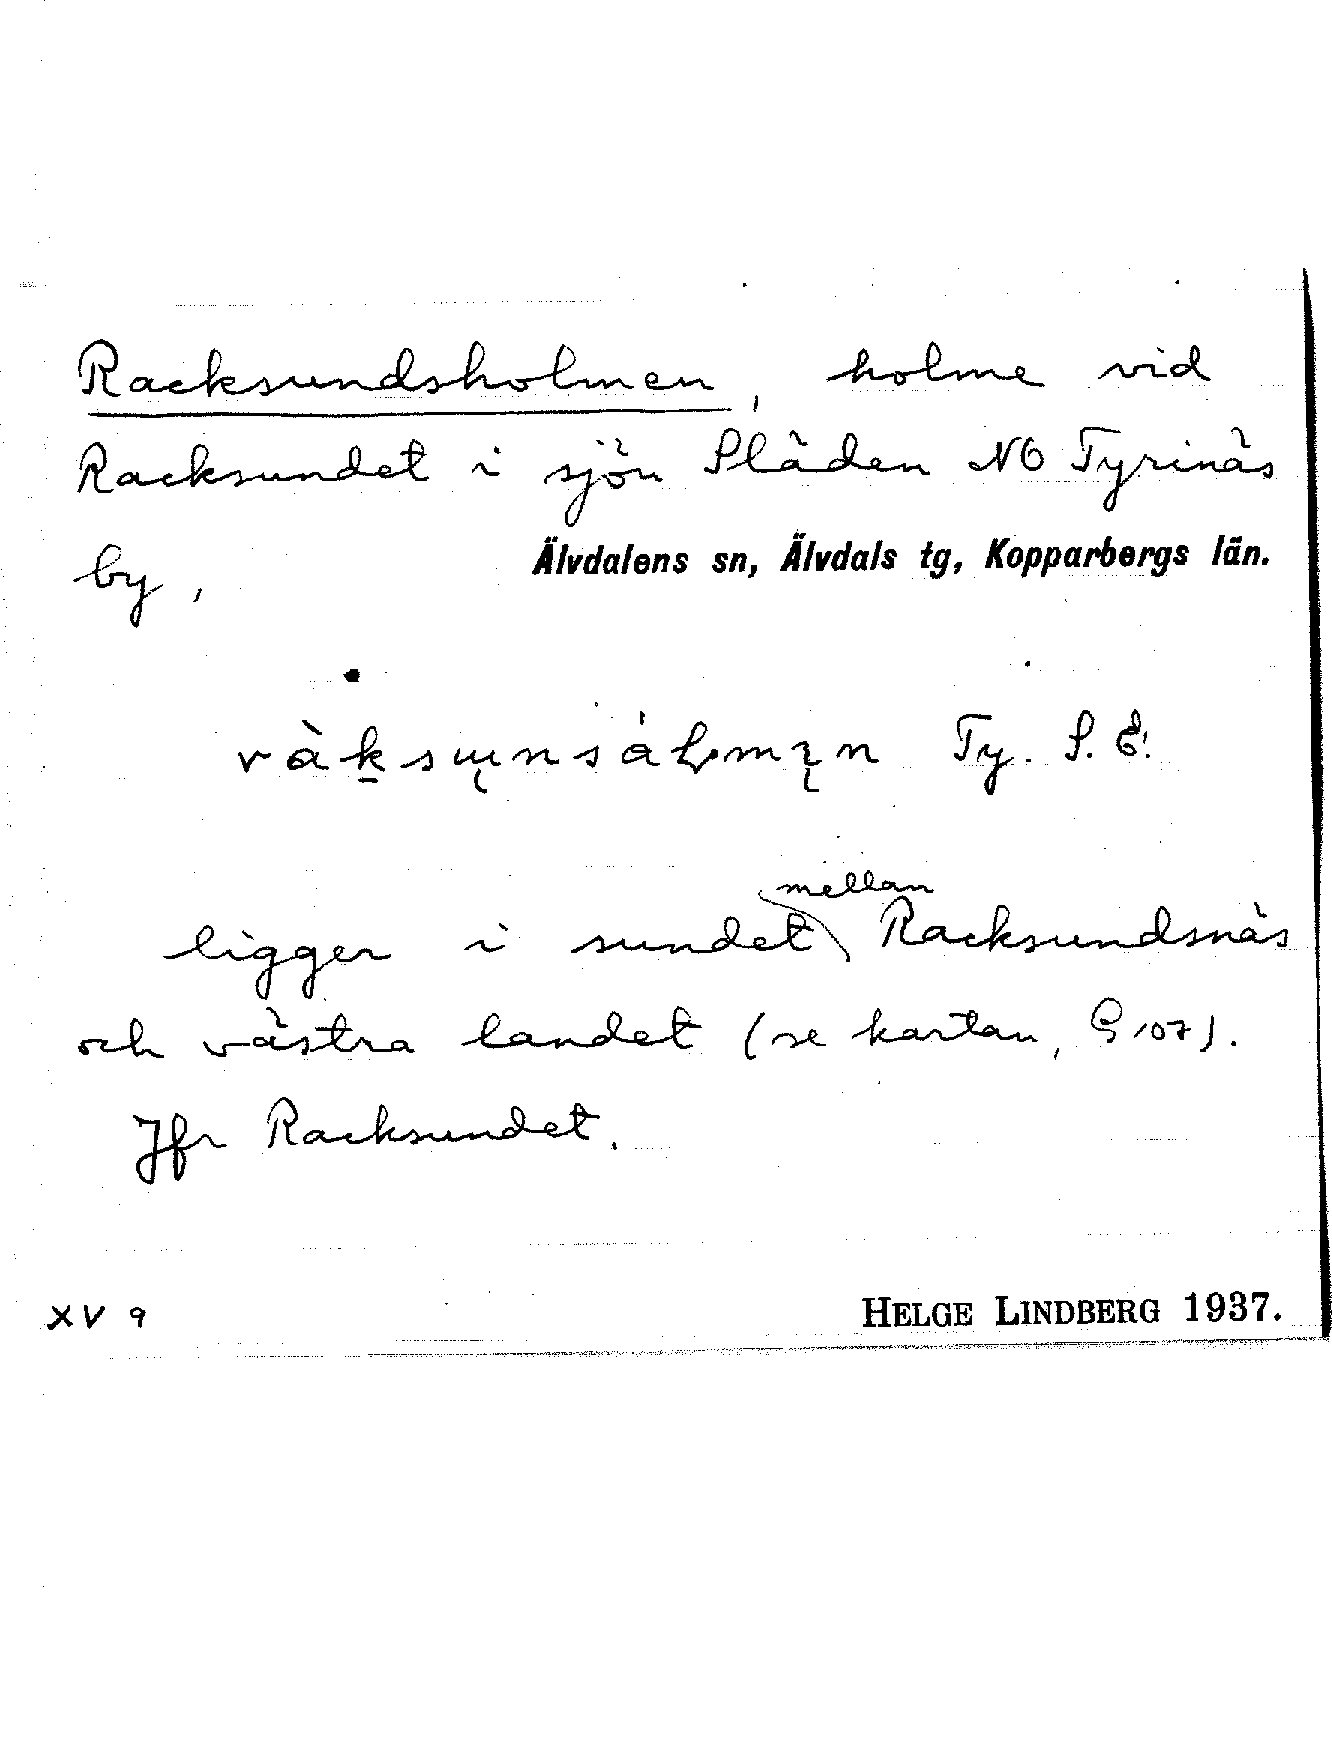 Racksundsholmen, holme vid
Racksundet i sjön Släden NO Tyrinäs
by, Älvdalens sn, Älvdals tg, Kopparbergs län.
Ty. S. E.
mellan
ligger i sundet Racksundsnäs
och västra landet (se kartan, G 107).
Jfr Racksundet.
XV 9 HELGE LINDBERG 1937.